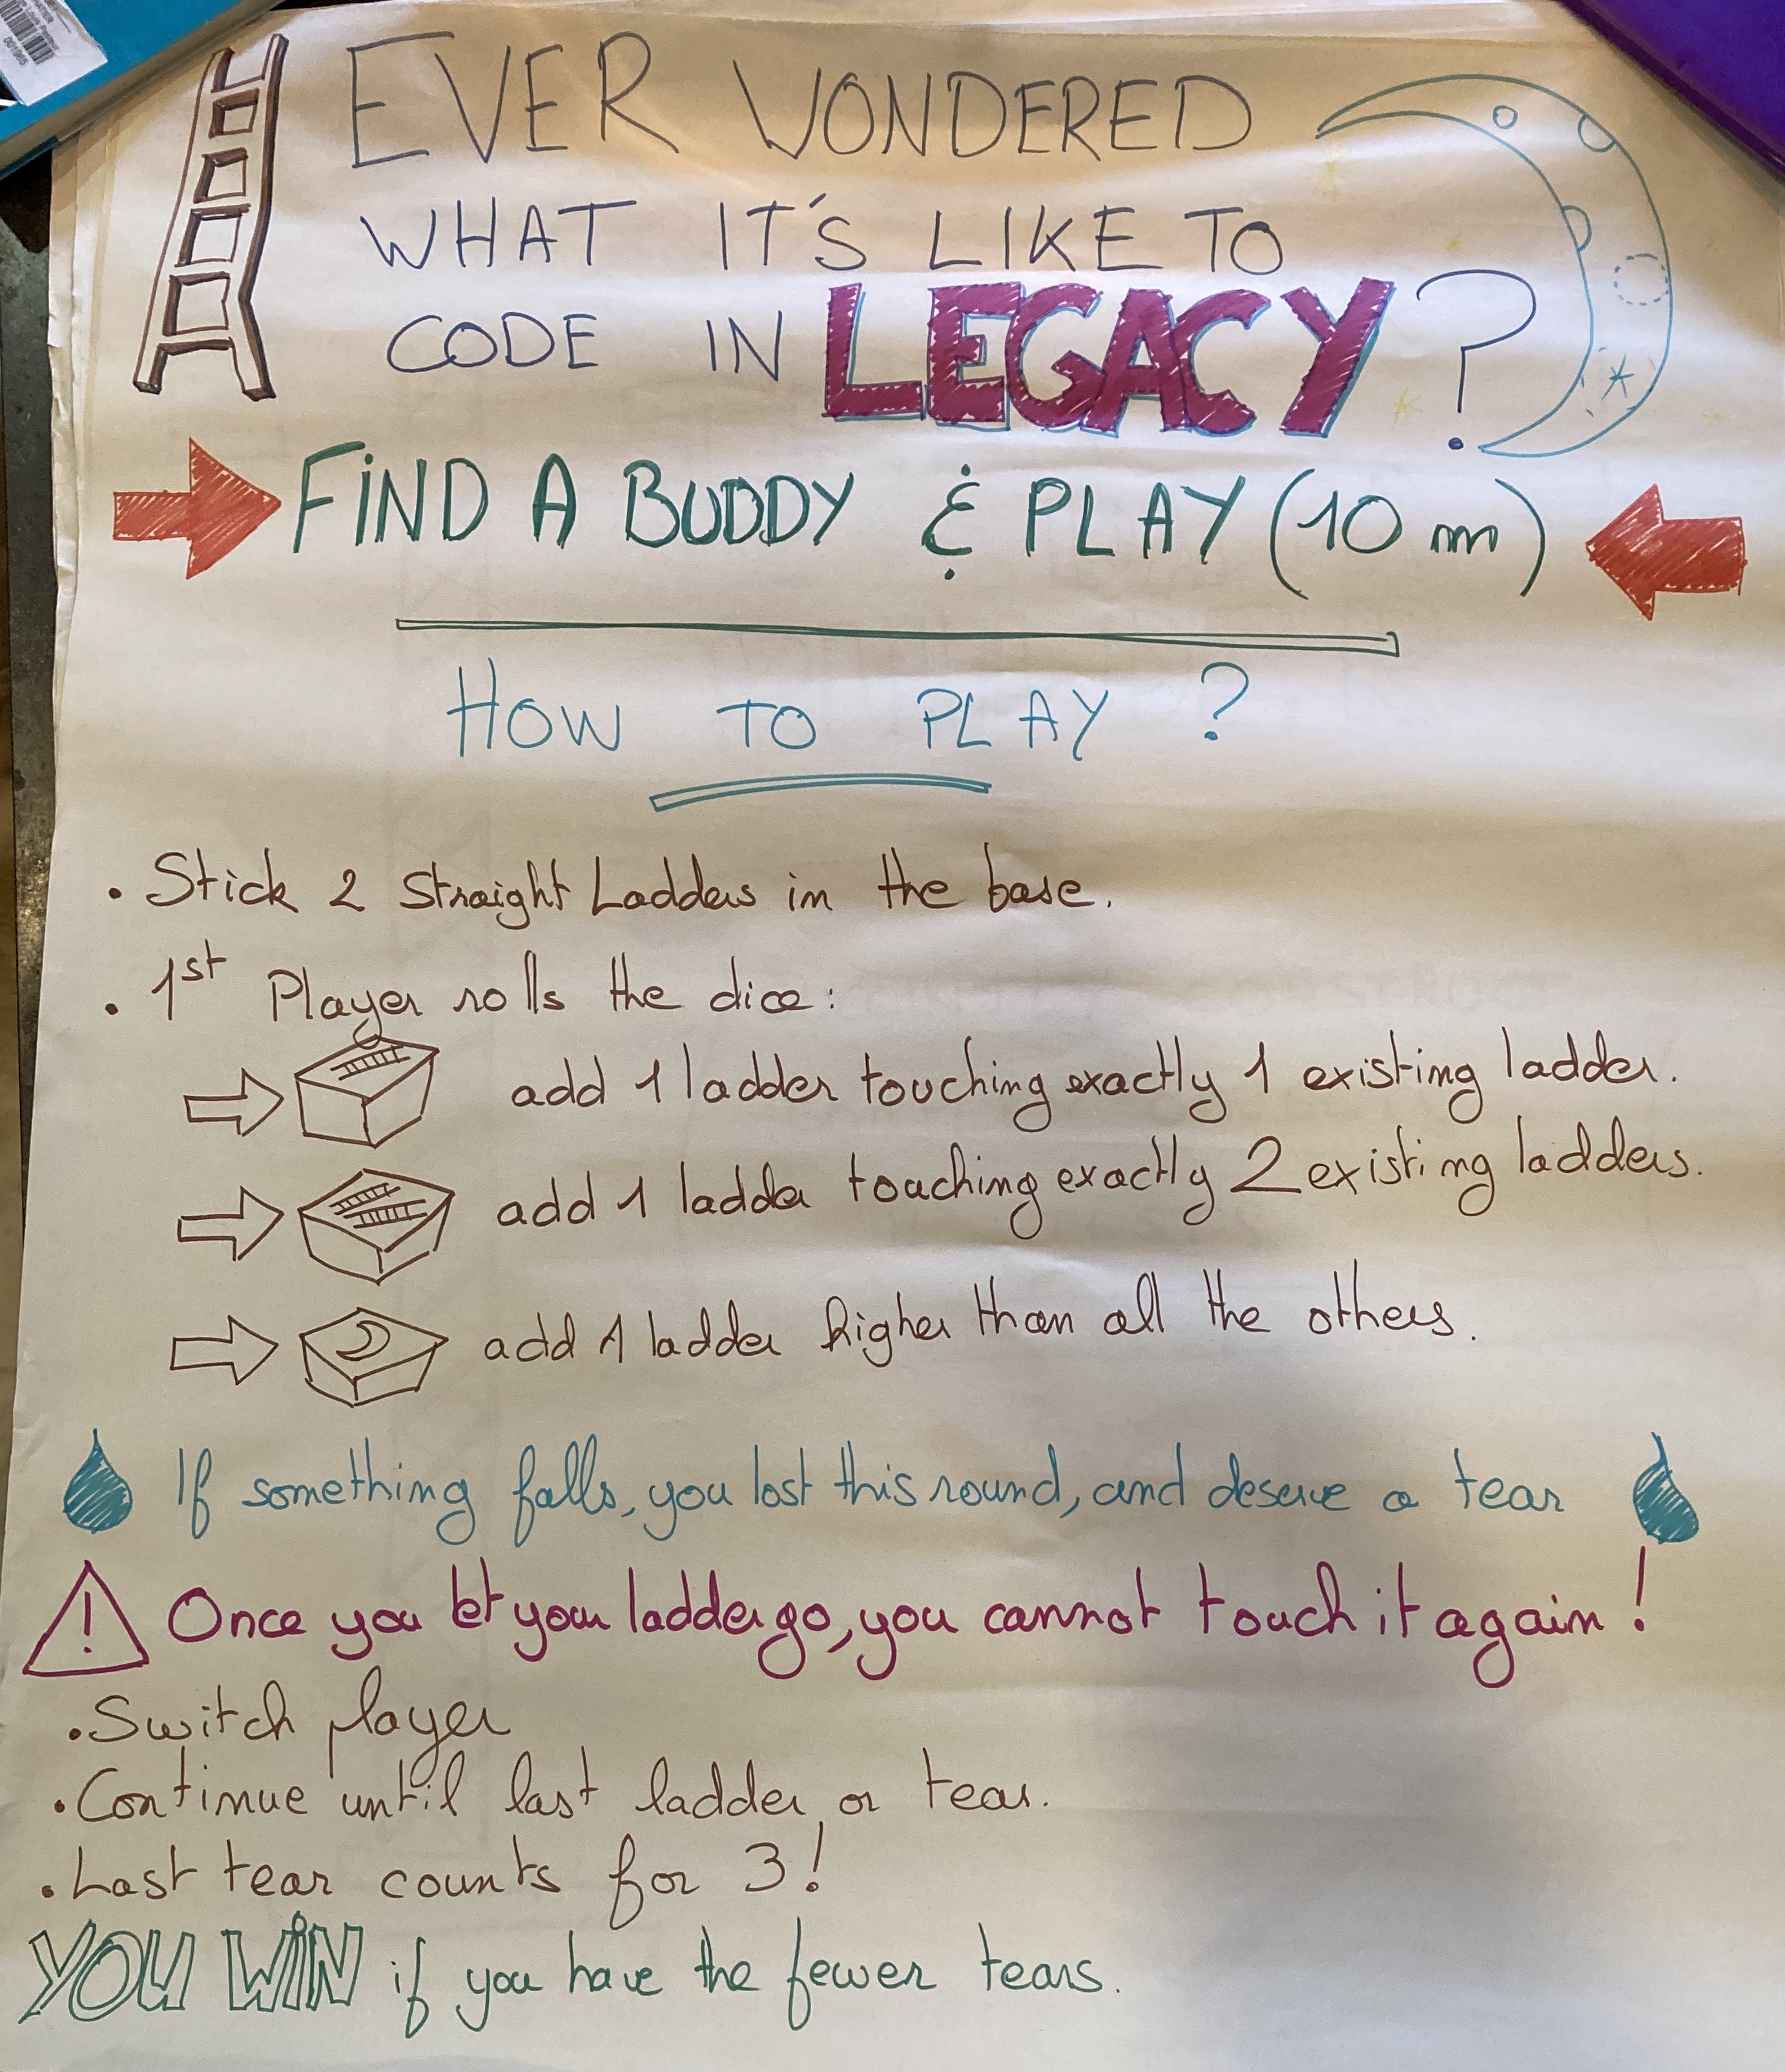 EVER WONDERED
WHAT IT'S LIKE TO
CODE IN LEGACY?
FIND A BUDDY & PLAY (10 m)
HOW TO PLAY ?
• Stick 2 Straight Ladders in the base.
• 1st Player rolls the dice:
⇨ add 1 ladder touching exactly 1 existing ladder.
⇨ add 1 ladder touching exactly 2 existing ladders.
⇨ add 1 ladder higher than all the others.
If something falls, you lost this round, and deserve a tear
! Once you let your ladder go, you cannot touch it again !
• Switch player
• Continue until last ladder or tear.
• Last tear counts for 3!
YOU WIN if you have the fewer tears.